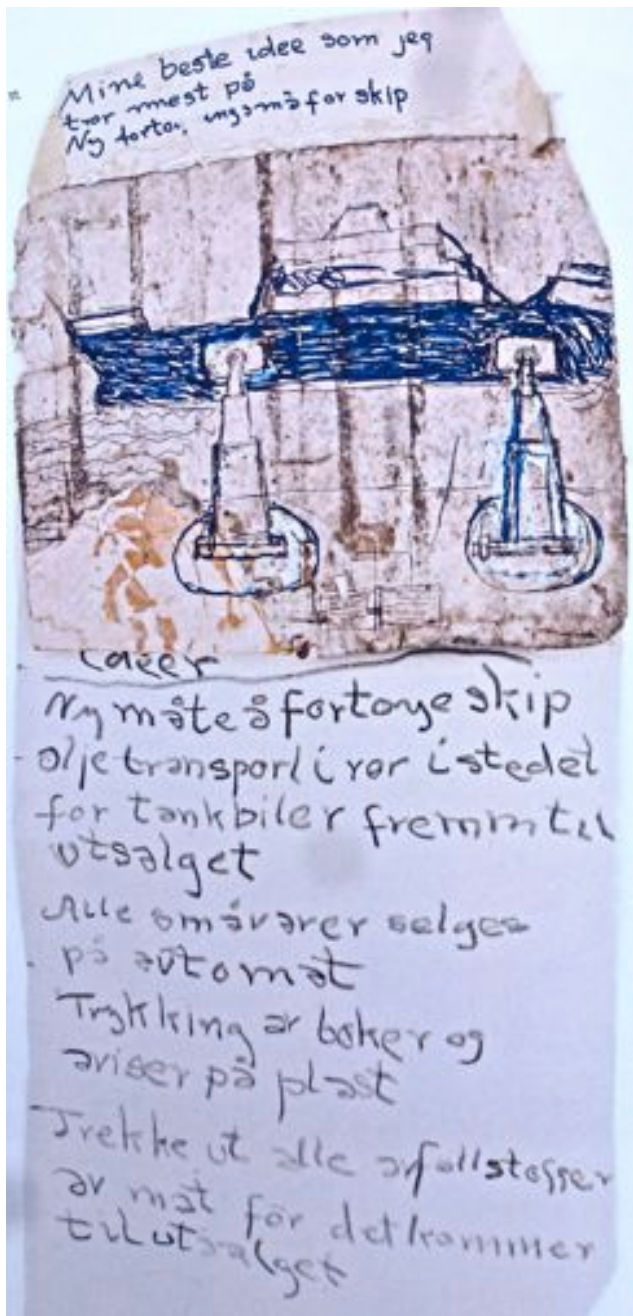 Mine beste idee som jeg
tror mest på
Ny måfor skip
Ny måte å fortøye skip
oljetransport i rør istedet
for tankbiler fremm til
utsalget
Alle småvarer selges
på automat
Trykking av bøker og
aviser på plast
Trekke ut alle avfallstoffer
av mat før det kommer
til utsalget